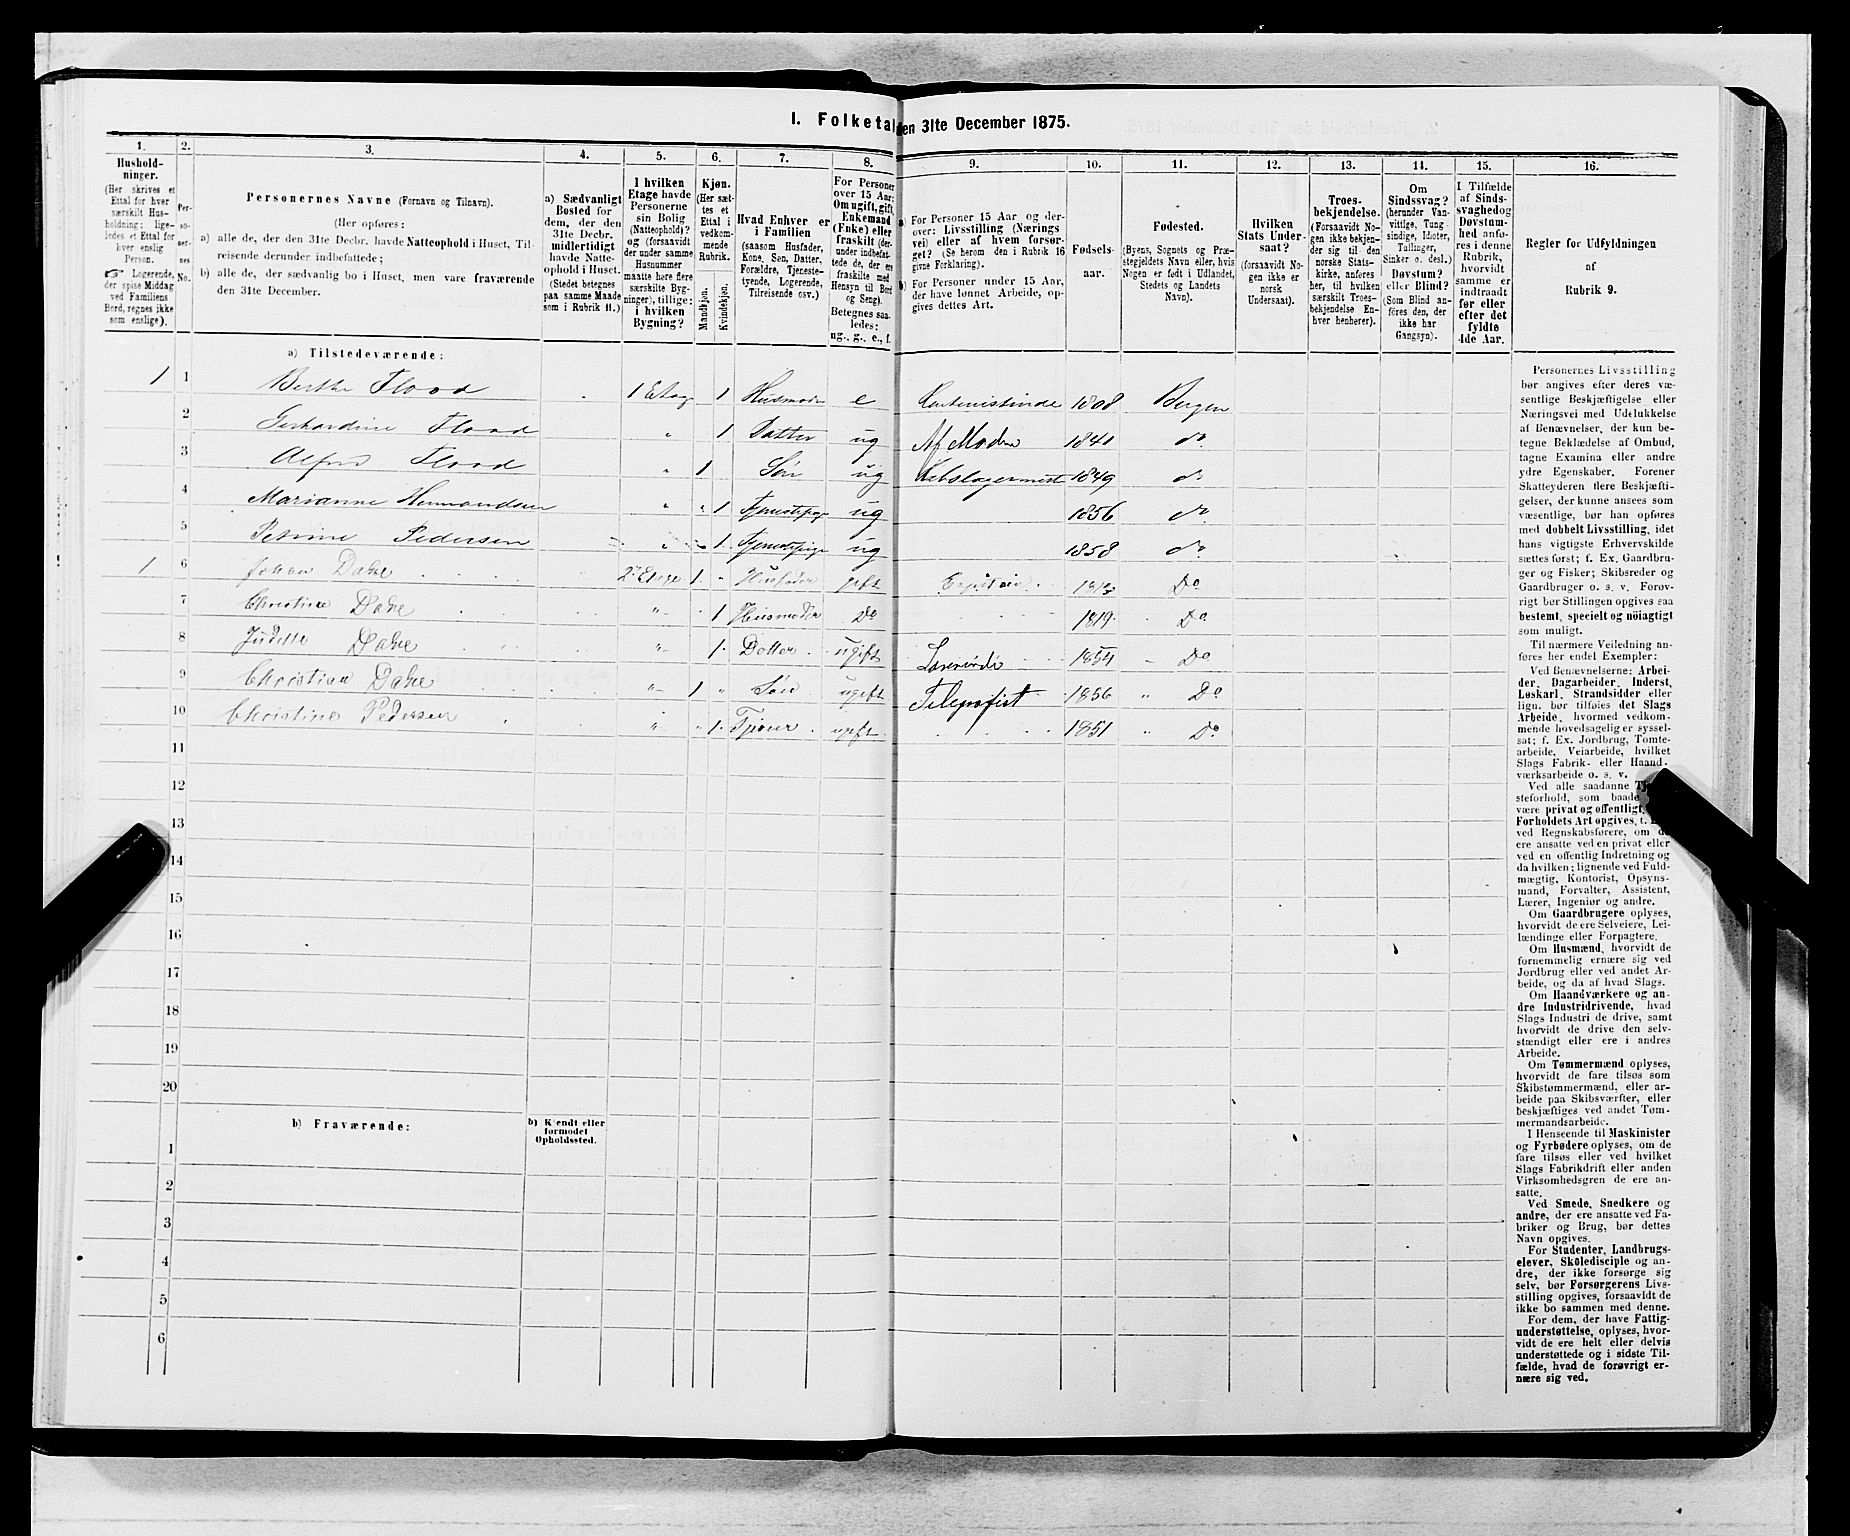 I. Folketal den 31te December 1875.
1. 2. 3. 4. 5. 6. 7. 8. 9. 10. 11. 12. 13. 14. 15. 16.
Hushold-
ninger.
(Her skrives et
Ettal for hver
særskilt Hus-
holdning; lige-
ledes et Ettal for
hver enslig
Person.
☞ Logerende,
der spise Middag
ved Familiens
Bord, regnes ikke
som enslige).
Per-
so-
ner-
nes
No.
Personernes Navne (Fornavn og Tilnavn).
(Her opføres:
a) alle de, der den 31te Decbr. havde Natteophold i Huset, Til-
reisende derunder indbefattede;
b) alle de, der sædvanlig bo i Huset, men vare fraværende
den 31te December.
a) Sædvanligt
Bosted for
dem, der den
31te Decbr.
midlertidigt
havde Natte-
ophold i Huset.
(Stedet betegnes
paa samme Maade
som i Rubrik 11.)
I hvilken
Etage havde
Personerne
sin Bolig
(Natteophold)?
og (forsaavidt
der under samme
Husnummer
maatte høre flere
særskilte Byg-
ninger), tillige:
i hvilken
Bygning?
Kjøn.
(Her sæt-
tes et
Ettal i
vedkom-
mende
Rubrik.
Mandkjøn.
Kvindekjøn.
Hvad Enhver er
i Familien
(saasom Husfader,
Kone, Søn, Datter,
Forældre, Tjeneste-
tyende, Logerende,
Tilreisende osv.)
For Personer
over 15 Aar:
Om ugift, gift,
Enkemand
(Enke) eller
fraskilt (der-
under indbefat-
tede de, der ere
fraskilte med
Hensyn til Bord
og Seng).
Betegnes saa-
ledes:
ug., g., e., f.
a) For Personer 15 Aar og der-
over: Livsstilling (Nærings
vei) eller af hvem forsør-
get? (Se herom den i Rubrik 16
givne Forklaring).
b) For Personer under 15 Aar,
der have lønnet Arbeide, op-
gives dettes Art.
Fødsels-
aar.
Fødested.
(Byens, Sognets og Præ-
stegjeldets Navn eller, hvis
Nogen er født i Udlandet,
Stedets og Landets
Navn).
Hvilken
Stats Under-
saat?
(forsaavidt No-
gen ikke er
norsk
Undersaat).
Troes-
bekjendelse.
(Forsaavidt No-
gen ikke bekjen-
der sig til den
norske Stats-
kirke, anføres
her, til hvilken
særskilt Troes-
bekjendelse En-
hver henhører).
Om
Sindssvag?
(herunder Van-
vittige, Tung-
sindige, Idioter,
Tullinger,
Sinker o. desl.)
Døvstum?
eller Blind?
(Som Blind an-
føres den, der
ikke har
Gangsyn).
I Tilfælde
af Sinds-
svaghed og
Døvstum-
hed anfø-
res i denne
Rubrik,
hvorvidt
samme er
indtraadt
før eller
efter det
fyldte
4de Aar.
Regler for Udfyldningen
af
Rubrik 9.
a) Tilstedeværende:
1 1 Berthe Flood 1 Etage 1 Husmoder e 1808 Bergen
2 Gerhardine Flood " 1 Datter ug Af Modren 1841 do
3 Alfred Flood " 1 Søn ug 1849 do
4 Marianne " " 1 Tjenestepige ug 1856 do
5 Petrine Pedersen " " 1 Tjenestepige ug 1858 do
1 6 Johan Dahe 2 Etage 1 " Husfader gift Capitain Do
7 Christine Dahe " 1 Husmoder Do 1819 Do
8 Judith Dahe " 1 Dotter ugift 1854 " Do
9 Christian Dahe " 1 " Søn ugift Telegrafist 1856 " Do
10 Christine Pedersen " " 1 ugift 1851 " Do
11
12
13
14
15
16
17
18
19
20
b) Fraværende:
b) Kjendt eller
formodet
Opholdssted.
1
2
3
4
5
6
Personernes Livsstilling
bør angives efter deres væ-
sentlige Beskjæftigelse eller
Næringsvei med Udelukkelse
af Benævnelser, der kun be-
tegne Beklædelse af Ombud,
tagne Examina eller andre
ydre Egenskaber. Forener
Skatteyderen flere Beskjæfti-
gelser, der kunne ansees som
væsentlige, bør han opføres
med dobbelt Livsstilling, idet
hans vigtigste Erhvervskilde
sættes først; f. Ex. Gaardbru-
ger og Fisker; Skibsreder og
Gaardbruger o. s. v. Forøv-
rigt bør Stillingen opgives saa
bestemt, specielt og nøiagtigt
som muligt.
Til nærmere Veiledning an-
føres her endel Exempler:
Ved Benævnelserne: Arbei-
der, Dagarbeider, Inderst,
Løskarl, Strandsidder eller
lign. bør tilføies det Slags
Arbeide, hvormed vedkom-
mende hovedsagelig er syssel-
sat; f. Ex. Jordbrug, Tomte-
arbeide, Veiarbeide, hvilket
Slags Fabrik- eller Haand-
værksarbeide o. s. v.
Ved alle saadanne
steforhold, som baade
være privat og offentligt,
Forholdets Art opgives, t.
ved Regnskabsførere, om de
ere ansatte ved en privat eller
ved en offentlig Indretning og
da hvilken; lignende ved Fuld-
mægtig, Kontorist, Opsyns-
mand, Forvalter, Assistent,
Lærer, Ingeniør og andre.
Om Gaardbrugere oplyses,
hvorvidt de ere Selveiere, Lei-
lændinge eller Forpagtere.
Om Husmænd, hvorvidt de
fornemmelig ernære sig ved
Jordbrug eller ved andet Ar-
beide, og da af hvad Slags.
Om Haandværkere og an-
dre Industridrivende, hvad
Slags Industri de drive, samt
hvorvidt de drive den selv-
stændigt eller ere i andres
Arbeide.
Om Tømmermænd oplyses,
hvorvidt de fare tilsøs som
Skibstømmermænd, eller ar-
beide paa Skibsværfter, eller
beskjæftiges ved andet Tøm-
mermandsarbeide.
I Henseende til Maskinister
og Fyrbødere oplyses, om de
fare tilsøs eller ved hvilket
Slags Fabrikdrift eller anden
Virksomhedsgren de ere an-
satte.
Ved Smede, Snedkere og
andre, der ere ansatte ved Fa-
briker og Brug, bør dettes
Navn opgives.
For Studenter, Landbrugs-
elever, Skoledisciple og an-
dre, der ikke forsørge sig
selv, bør Forsørgerens Livs-
stilling opgives, forsaavidt de
ikke bo sammen med denne.
For dem, der have Fattig-
understøttelse, oplyses, hvor-
vidt de ere helt eller delvis
understøttede og i sidste Til-
fælde, hvad de forøvrigt er-
nære sig ved.